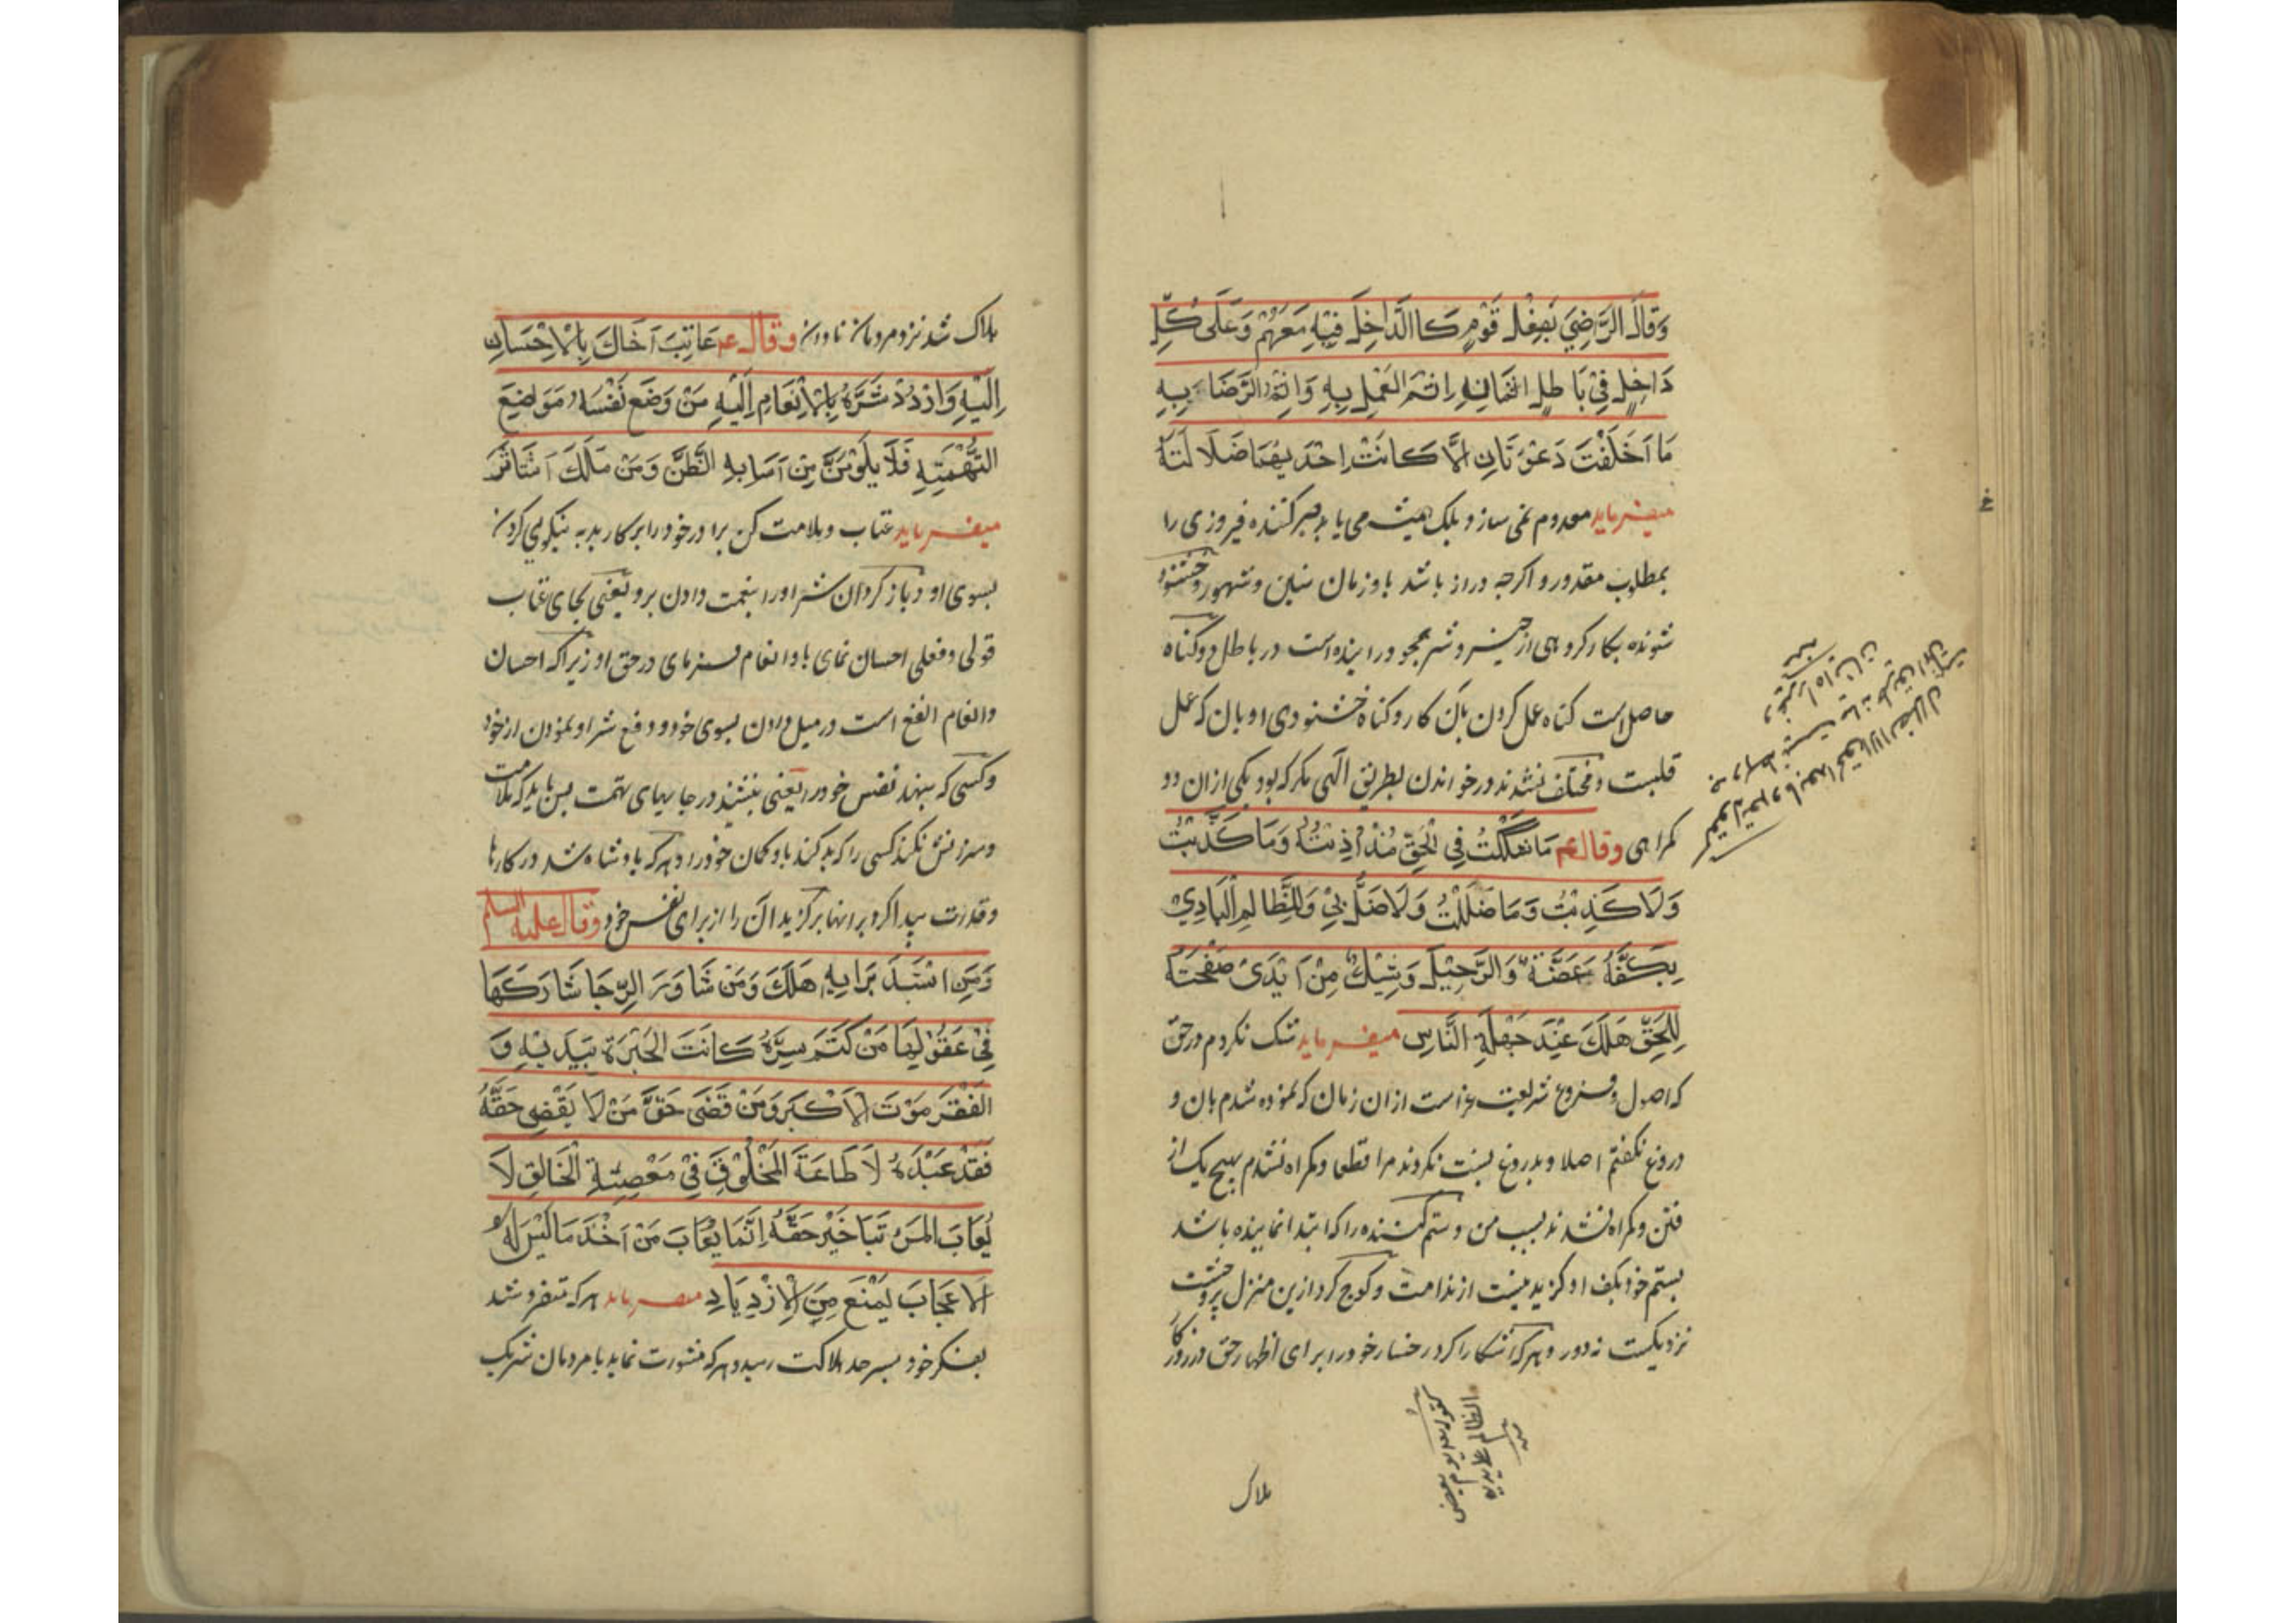 وَقَالَ الرَّاضِيَ بَفِعْلِ قَوْمٍ كَا الدَّاخِلَ فِيْهِ مَعَهُمْ وَعَلَى كُلِّ
دَاخِلٍ فِيْ بَاطِلٍ اثمَانِهِ اِثمَ العَمَلِ بِهِ وَاِثمُ الرَّضَاءَ بِهِ
مَا اَخَلَفْتَ دَعْوَتَانِ الَّا كَانَتْ اِحْدَيهُمَا ضَلَالَتَهُ
میفرماید معدوم نمی سازد بلک همیشه می یابد صبر کننده فیروزی را
بمطلوب مقدور و اکرچه دراز باشد باو زمان سنین و شهور و خشنود
شونده بکار کروهی از خیر و شر همچو در اینده است در باطل دو کناه
حاصل است کناه عمل کردن بآن کار و کناه خشنودی او بان که عمل
قلبست و مختلف نشدند در خواندن بطریق الهی مکر که بود یکی از ان دو
کمراهی وقال عم مَا شَكَكْتُ فِي الْحَقِّ مُنْذُ اُذِيْتُهُ وَمَا كَذَبْتُ
وَلَا كَذِبْتُ وَمَا ضَلَلْتُ وَلَا ضَلَّ بِيْ وَلِلظَّالِمِ الْبَادِيْ
بِكَفَّهُ عَضَّةٌ وَالرَّحِيْلَ وَشِيْكٌ مِنْ اَبْدَىْ صَفْحَتَهُ
لِلحَقِّ هَلَكَ عِنْدَ جَهْلَةِ النَّاسِ میفرماید شک نکردم در حق
که اصول و فروع شریعت غراست از ان زمان که نموده شدم بان و
دروغ نکفتم اصلا و بدروغ نسبت نکردند مرا قطعا و کمراه نشدم بهیچ یک از
فتن و کمراه نشدند بسبب من و ستم کننده را که ابتدا نماینده باشد
بستم خود بکف او کزیدنیست از ندامت و کوچ کردن ازین منزل پروحشت
نزدیکست نه دور و هر که آشکارا کرد رخسار خود را برای اظهار حق در روزکار
هلاک
هلاک شد نزد مردمان نادان وقال عم عَاتِبَ اَخَاكَ بِالْاِحْسَانِ
اِلَيْهِ وَارْدُدْ شَرَّهُ بِالْاِنْعَامِ اِلَيْهِ مَنْ وَضَعَ نَفْسَهُ مَوَاضِعَ
التُّهْمَتِهِ فَلَا يَلُوْمَنَّ مِنْ اَسَابِهِ الظَّنَّ وَمَنْ مَلَكَ اسْتَاثَرَ
میفرماید عتاب و ملامت کن برادر خود را بر کار بد به نیکوئی کردن
بسوی او و باز کردان شر او را بنعمت دادن برو یعنی بجای عتاب
قولی و فعلی احسان نمای باو و انعام فرمای در حق او زیرا که احسان
و انعام انفع است در میل دادن بسوی خود و دفع شر او نمودن از خود
و کسی که بنهد نفس خود را یعنی بنشیند در جایهای تهمت پس باید که ملامت
و سرزنش نکند کسی را که بد کند باو کمان خود را و هر که بادشاه شد در کارها
و قدرت پیدا کرد بر انها برکزید ان را از برای نفس خود وقال علیه السلم
وَمَنِ اسْتَبَدَ بَرَايِهِ هَلَكَ وَمَنْ شَاوَرَ الرِّجَا شَارَكَهَا
فِيْ عَقُوْلِهَا مَنْ كَتَمَ سِرَّهُ كَانَتَ الخَيْرَةَ بَيَدِيْهِ وَ
الفَقْرَ مَوْتَ الْاَكْبَرَ وَمَنْ قَضَى حَقَّ مَنْ لَا يَقْضِى حَقَّهُ
فَقَدْ عَبْدَهُ لَا طَاعَةَ المَخْلُوْقٍ فِيْ مَعْصِيَةِ الْخَالِقِ لَا
يُعَابَ المَرْءُ تَبَاخَيْرِ حَقَّهُ اِنَّمَا يُعَابَ مَنْ اَخْذَ مَا لَيْسَ لَهُ
الاعَجَابَ يَمْنَعَ مِنَ الْاِزْدِيَادِ میفرماید هر که متفرد شد
بفکر خود بسرحد هلاکت رسید و هر که مشورت نماید با مردمان شریک